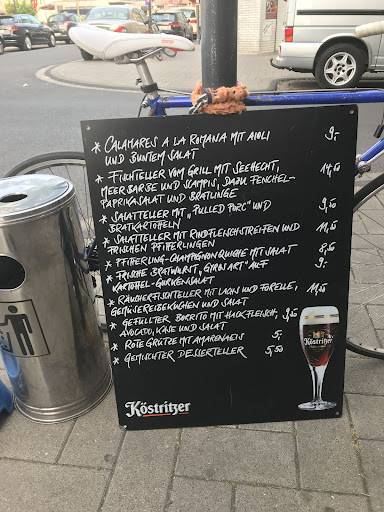 * CALAMARES A LA ROMANA MIT AIOLI 9,-
UND BUNTEM SALAT
* FISCHTELLER VOM GRILL MIT SEEHECHT, 14,50
MEERBARBE UND SCAMPIS, DAZU FENCHEL-
PAPRIKASALAT UND BRATLINGE
* SALATTELLER MIT „PULLED PORC" UND 9,50
BRATKARTOFFELN
* SALATTELLER MIT RINDFLEISCHSTREIFEN UND 11,50
FRISCHEN PFIFFERLINGEN
* PFIFFERLING-CHAMPIGNONQUICHE MIT SALAT 8,50
* FRISCHE BRATWURST, ART" AUF 9,-
KARTOFFEL-GURKENSALAT
* RÄUCHERFISCHTELLER MIT LACHS UND FORELLE, 11,50
GEMÜSEREIBEKUCHEN UND SALAT
* GEFÜLLTER BURRITO MIT HACKFLEISCH, 9,50
AVOCADO, KÄSE UND SALAT
* ROTE GRÜTZE MIT AMARENAEIS 5,-
* GEMISCHTER DESSERTELLER 5,50
Köstritzer
Köstritzer